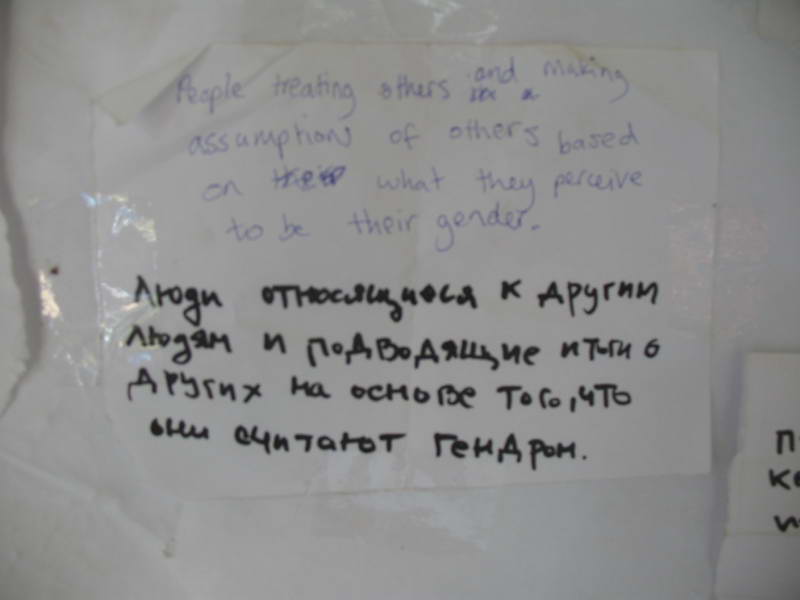 People treating others and making
assumptions of others based
on what they perceive
to be their gender.
Люди относящиеся к другим
людям и подводящие итоги о
других на основе того, что
они считают гендром.
П
ке
и